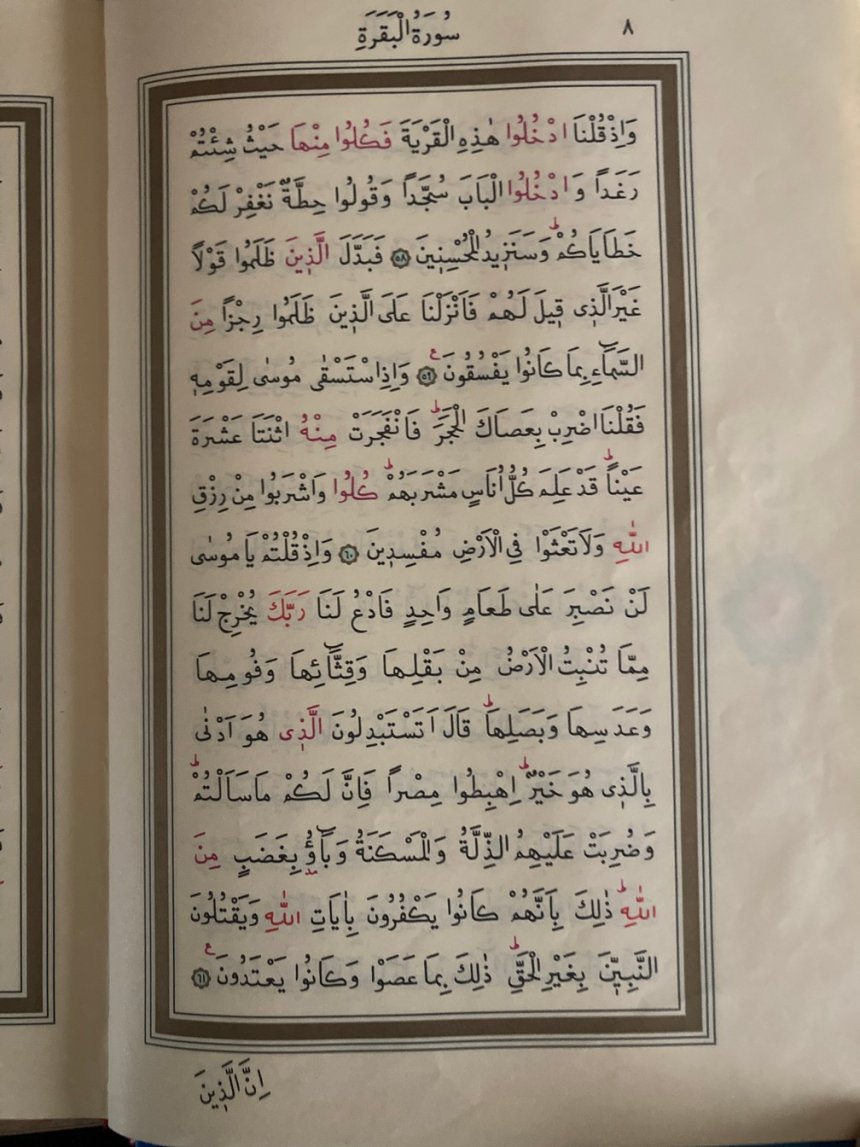 ٨
سُورَةُ الْبَقَرَةِ
وَاِذْ قُلْنَا ادْخُلُوا هٰذِهِ الْقَرْيَةَ فَكُلُوا مِنْهَا حَيْثُ شِئْتُمْ
رَغَداً وَادْخُلُوا الْبَابَ سُجَّداً وَقُولُوا حِطَّةٌ نَغْفِرْ لَكُمْ
خَطَايَاكُمْۜ وَسَنَزٖيدُ الْمُحْسِنٖينَ ﴿٥٨﴾ فَبَدَّلَ الَّذٖينَ ظَلَمُوا قَوْلاً
غَيْرَ الَّذٖى قٖيلَ لَهُمْ فَاَنْزَلْنَا عَلَى الَّذٖينَ ظَلَمُوا رِجْزاً مِنَ
السَّمَٓاءِ بِمَا كَانُوا يَفْسُقُونَࣖ ﴿٥٩﴾ وَاِذِ اسْتَسْقٰى مُوسٰى لِقَوْمِهٖ
فَقُلْنَا اضْرِبْ بِعَصَاكَ الْحَجَرَؕ فَانْفَجَرَتْ مِنْهُ اثْنَتَا عَشْرَةَ
عَيْناًؕ قَدْ عَلِمَ كُلُّ اُنَاسٍ مَشْرَبَهُمْؕ كُلُوا وَاشْرَبُوا مِنْ رِزْقِ
اللّٰهِ وَلَا تَعْثَوْا فِى الْاَرْضِ مُفْسِدٖينَ ﴿٦٠﴾ وَاِذْ قُلْتُمْ يَا مُوسٰى
لَنْ نَصْبِرَ عَلٰى طَعَامٍ وَاحِدٍ فَادْعُ لَنَا رَبَّكَ يُخْرِجْ لَنَا
مِمَّا تُنْبِتُ الْاَرْضُ مِنْ بَقْلِهَا وَقِثَّٓائِهَا وَفُومِهَا
وَعَدَسِهَا وَبَصَلِهَاؕ قَالَ اَتَسْتَبْدِلُونَ الَّذٖى هُوَ اَدْنٰى
بِالَّذٖى هُوَ خَيْرٌؕ اِهْبِطُوا مِصْراً فَاِنَّ لَكُمْ مَا سَاَلْتُمْؕ
وَضُرِبَتْ عَلَيْهِمُ الذِّلَّةُ وَالْمَسْكَنَةُ وَبَٓاؤُ بِغَضَبٍ مِنَ
اللّٰهِؕ ذٰلِكَ بِاَنَّهُمْ كَانُوا يَكْفُرُونَ بِاٰيَاتِ اللّٰهِ وَيَقْتُلُونَ
النَّبِيّٖنَ بِغَيْرِ الْحَقِّؕ ذٰلِكَ بِمَا عَصَوْا وَكَانُوا يَعْتَدُونَࣖ ﴿٦١﴾
اِنَّ الَّذٖينَ